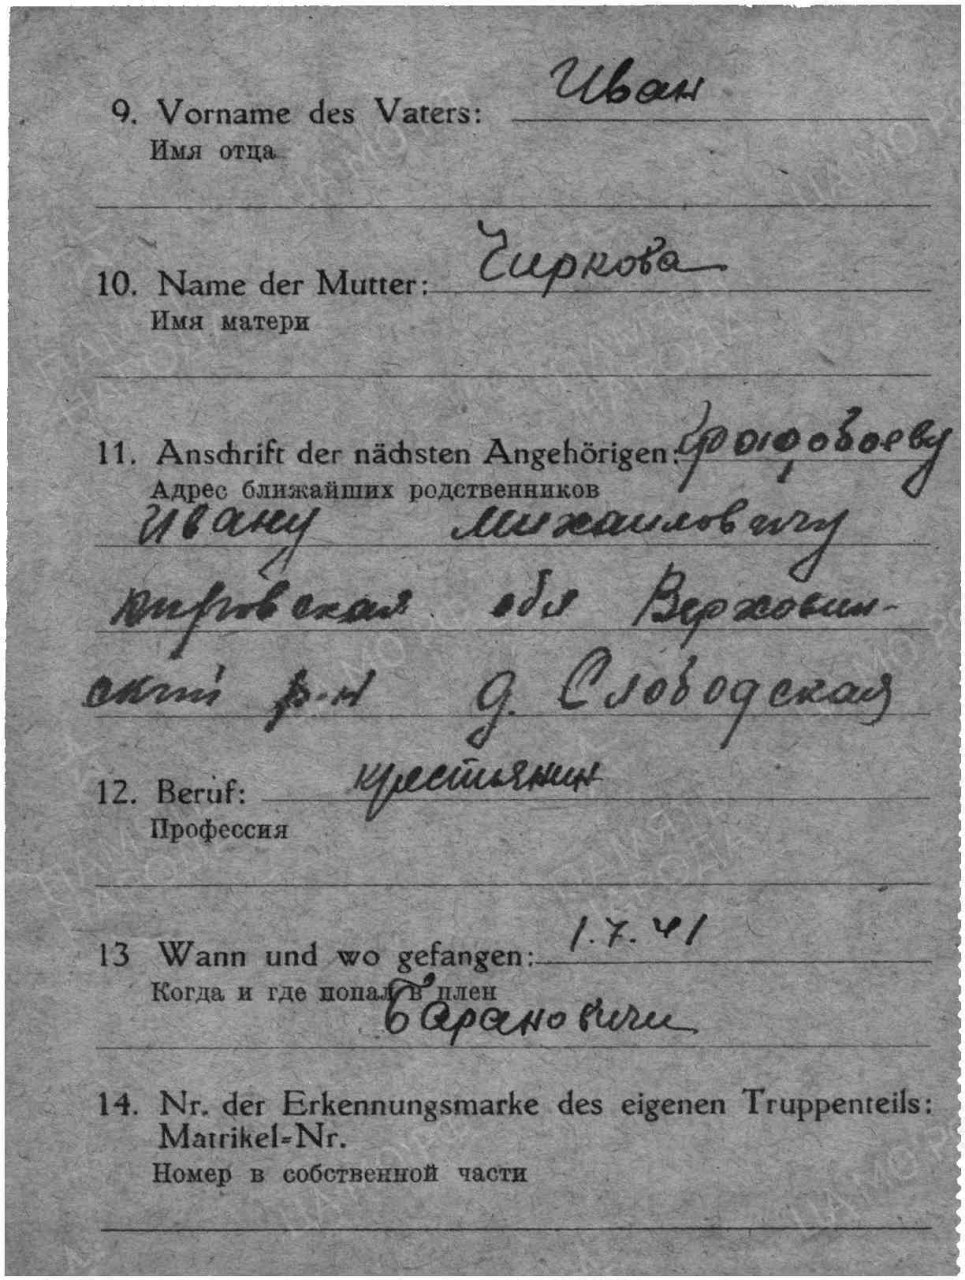 9. Vorname des Vaters: Иван
Имя отца
10. Name der Mutter: Чиркова
Имя матери
11. Anschrift der nächsten Angehörigen:
Адрес ближайших родственников
Ивану Михаиловичу
кировская обл Верховин-
ский р-н д. Слободская
12. Beruf: крестьянин
Профессия
13 Wann und wo gefangen: 1.7.41
Когда и где попал в плен
Барановичи
14. Nr. der Erkennungsmarke des eigenen Truppenteils:
Matrikel-Nr.
Номер в собственной части